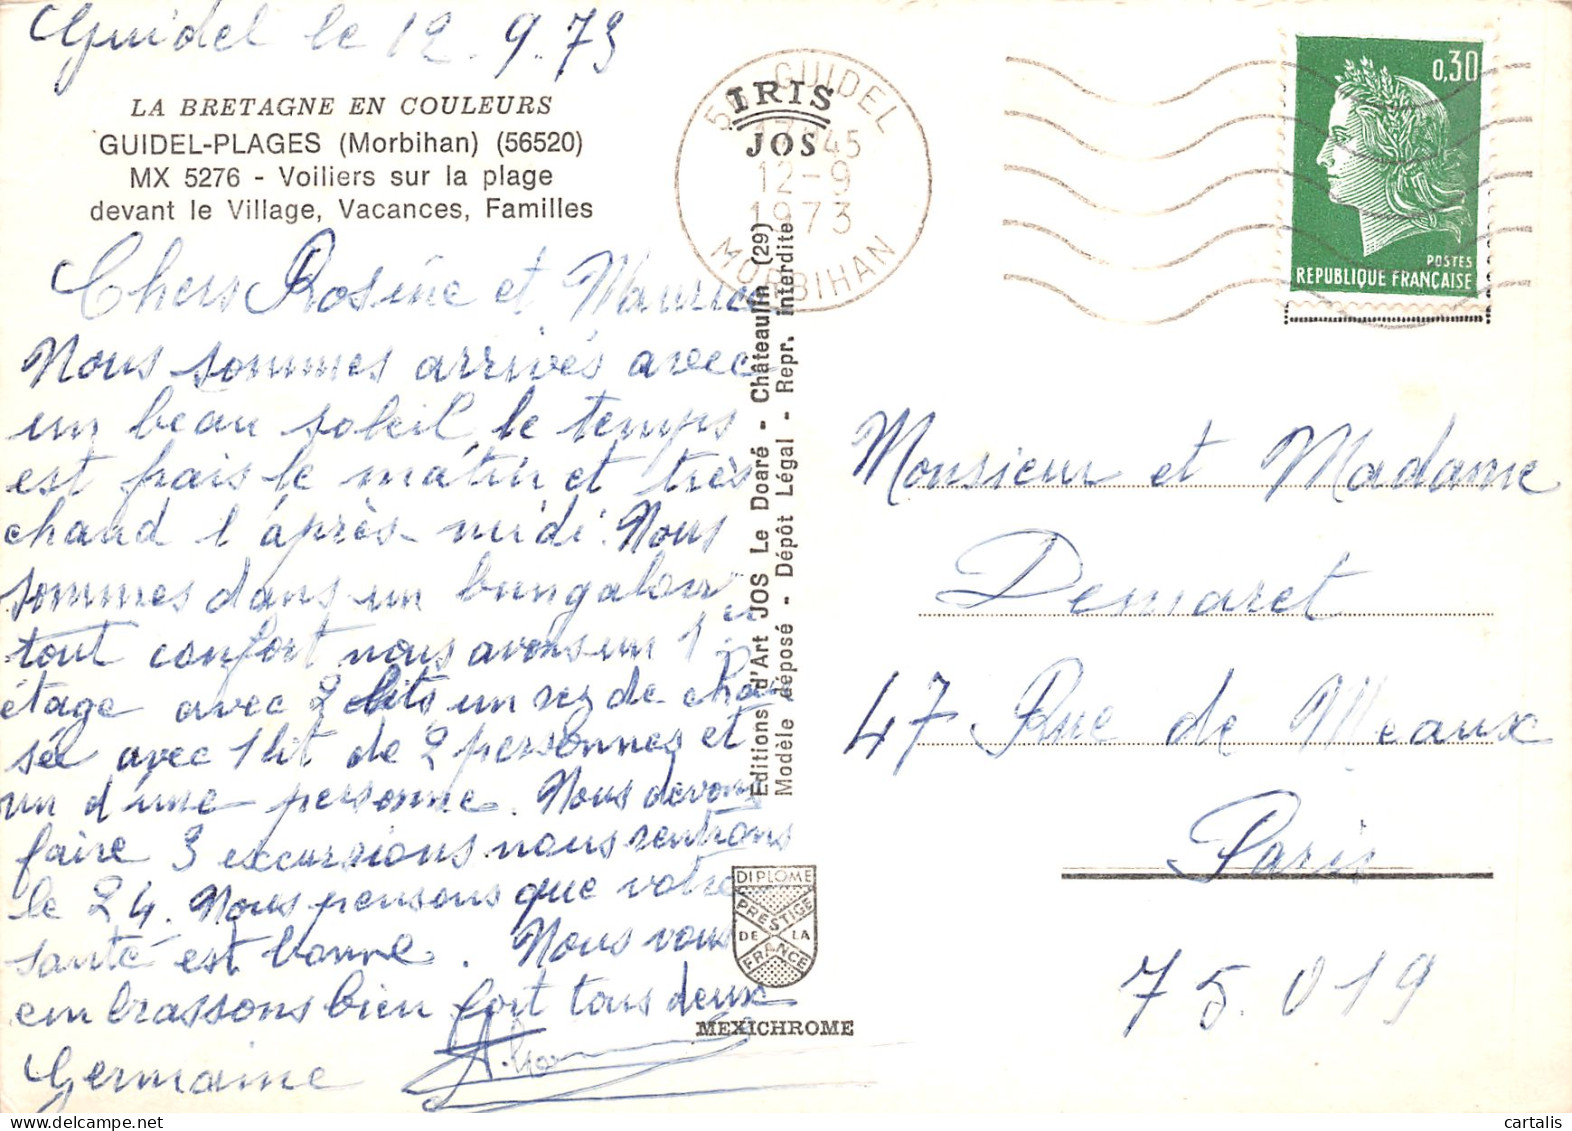 Guidel le 12.9.73
LA BRETAGNE EN COULEURS
GUIDEL-PLAGES (Morbihan) (56520)
MX 5276 - Voiliers sur la plage
devant le Village, Vacances, Familles
Chers Rosine et Maurice
Nous sommes arrivés avec
un beau soleil le temps
est frais le matin et très
chaud l'après-midi. Nous
sommes dans un bungalow
tout confort nous avons un 1er
étage avec 2 lits un rez de chau
sée avec 1 lit de 2 personnes et
un d'une personne. Nous devons
faire 3 excursions nous rentrons
le 24. Nous pensons que votre
santé est bonne. Nous vous
embrassons bien fort tous deux
Germaine
IRIS
JOS
56 GUIDEL
17H45
12-9
1973
MORBIHAN
Editions d'Art JOS Le Doaré - Châteaulin (29)
Modèle déposé - Dépôt Légal - Repr. interdite
DIPLOME
PRESTIGE
DE LA
FRANCE
MEXICHROME
0,30
POSTES
REPUBLIQUE FRANÇAISE
Monsieur et Madame
Demaret
47 Rue de Meaux
Paris
75.019
delcampe.net
cartalis